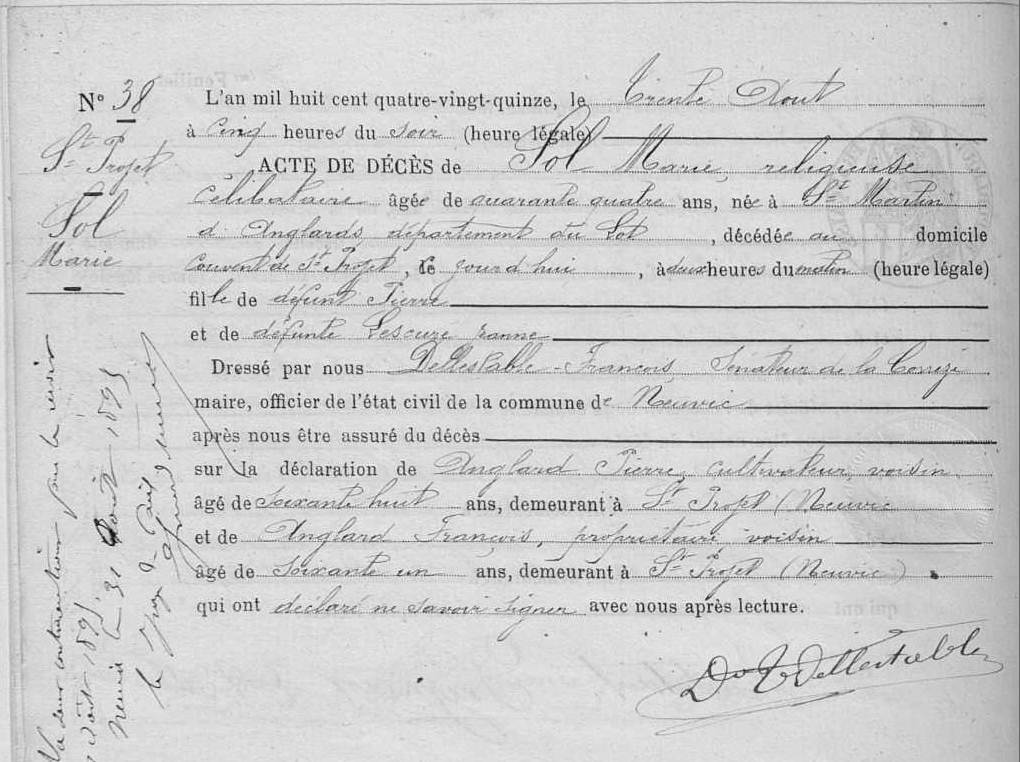 N° 38
St Projet
Sol
Marie
L'an mil huit cent quatre-vingt-quinze, le Trente Aout
à cinq heures du soir (heure légale)
ACTE DE DÉCÈS de Sol Marie, religieuse
célibataire âgée de quarante quatre ans, née à St Martin
d'Anglards département du Lot, décédée au domicile
couvent de St Projet, ce jourd'hui, à deux heures du matin (heure légale)
fille de défunt Pierre
et de défunte Lescure
Dressé par nous Dellestable François, Sénateur de la Corrèze
maire, officier de l'état civil de la commune de Neuvic
après nous être assuré du décès
sur la déclaration de Anglard Pierre, cultivateur, voisin
âgé de soixante huit ans, demeurant à St Projet (Neuvic
et de Anglard François, propriétaire, voisin
âgé de soixante un ans, demeurant à St Projet (Neuvic)
qui ont déclaré ne savoir signer avec nous après lecture.
Dr Dellestable
Vu pour le mois
août 1895
Neuvic le 31 août 1895
le Juge de Paix